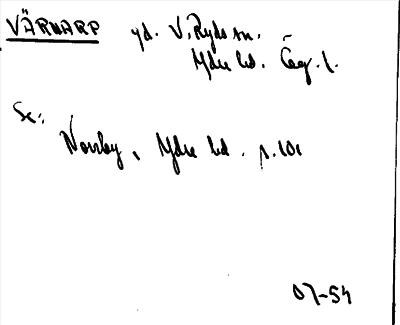 VÄRNARP yd. V. Ryds sn.
Ydre hd. Ög. l.
Se:
Norrby, Ydre hd. s. 101
07-54